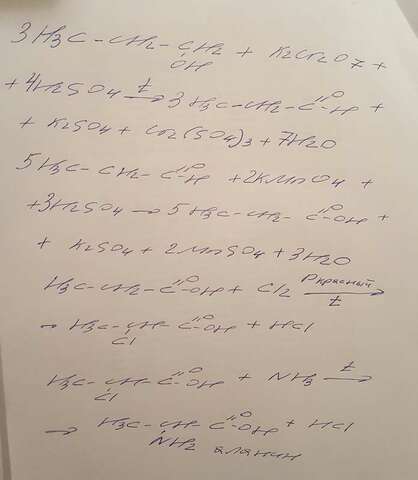 3H₃C – CH₂ – CH₂ + K₂Cr₂O₇ +
OH
+ 4H₂SO₄ →t 3 H₃C – CH₂ – C=O–H +
+ K₂SO₄ + Cr₂(SO₄)₃ + 7H₂O
5H₃C – CH₂ – C=O–H + 2KMnO₄ +
+ 3H₂SO₄ → 5 H₃C – CH₂ – C=O–OH +
+ K₂SO₄ + 2MnSO₄ + 3H₂O
H₃C – CH₂ – C=O–OH + Cl₂ P красный → t
→ H₃C – CH – C=O–OH + HCl
Cl
H₃C – CH – C=O–OH + NH₃ →t
Cl
→ H₃C – CH – C=O–OH + HCl
NH₂ аланин